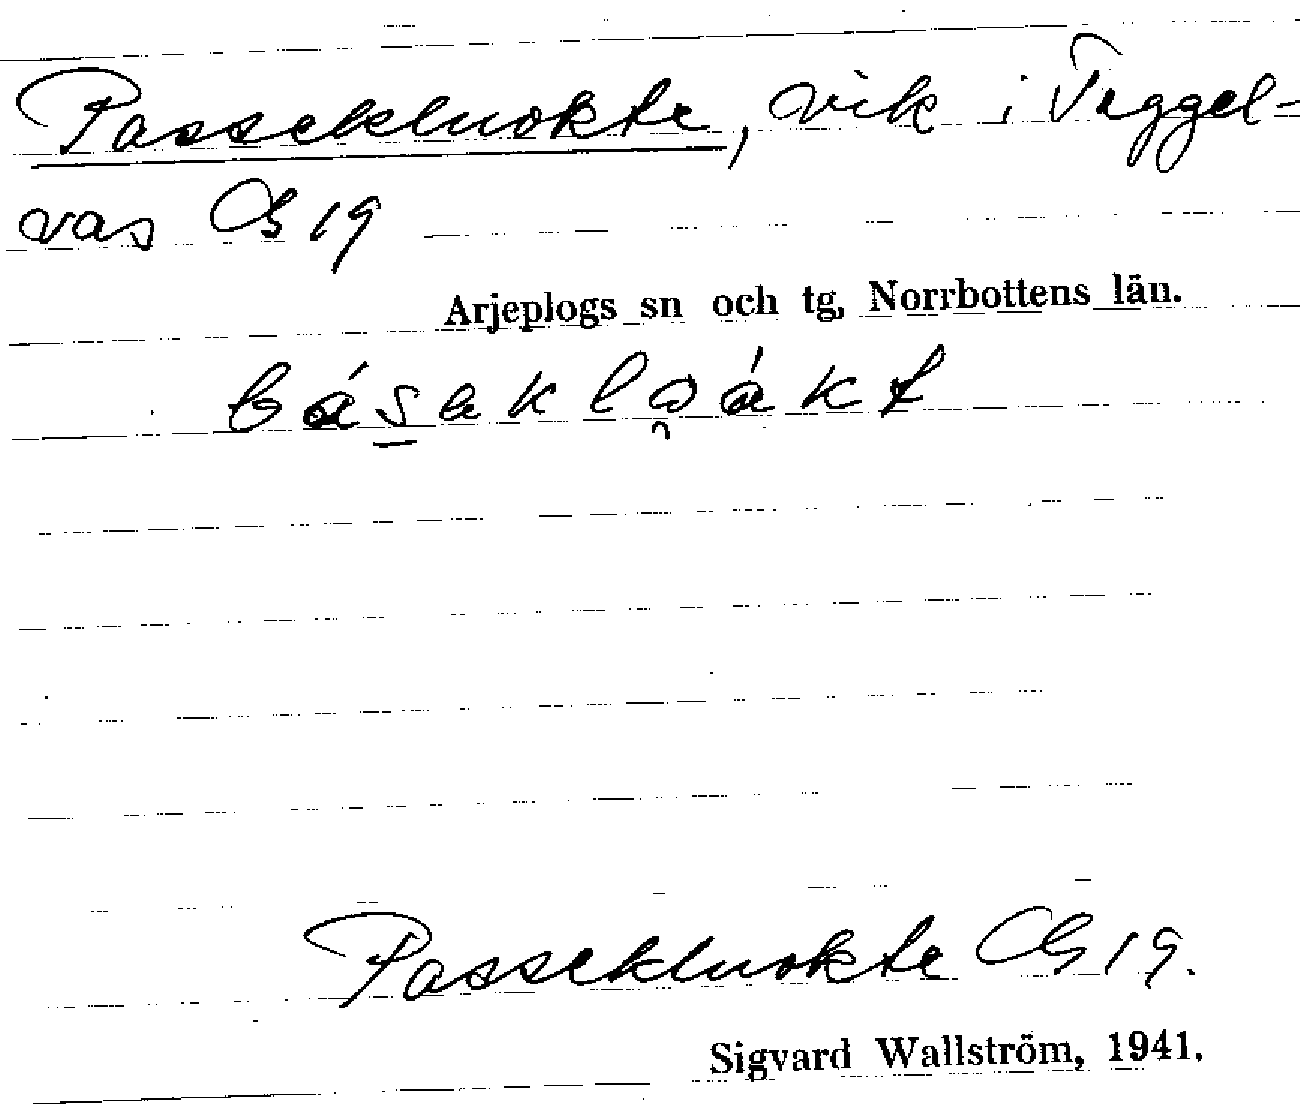 Passekluokte, vik i Teggel=
vas CB 19
Arjeplogs sn och tg, Norrbottens län.
Passekluokte CB 19.
Sigvard Wallström, 1941.